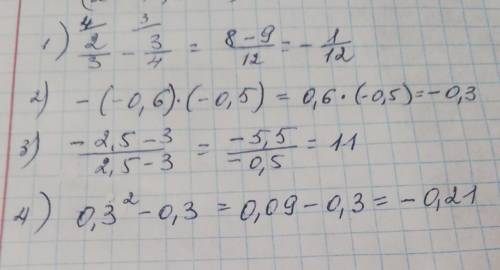 1) ⁴2/3 - ³3/4 = (8-9)/12 = -1/12
2) -(-0,6)·(-0,5) = 0,6·(-0,5) = -0,3
3) (-2,5-3)/(2,5-3) = (-5,5)/(-0,5) = 11
4) 0,3² - 0,3 = 0,09 - 0,3 = -0,21